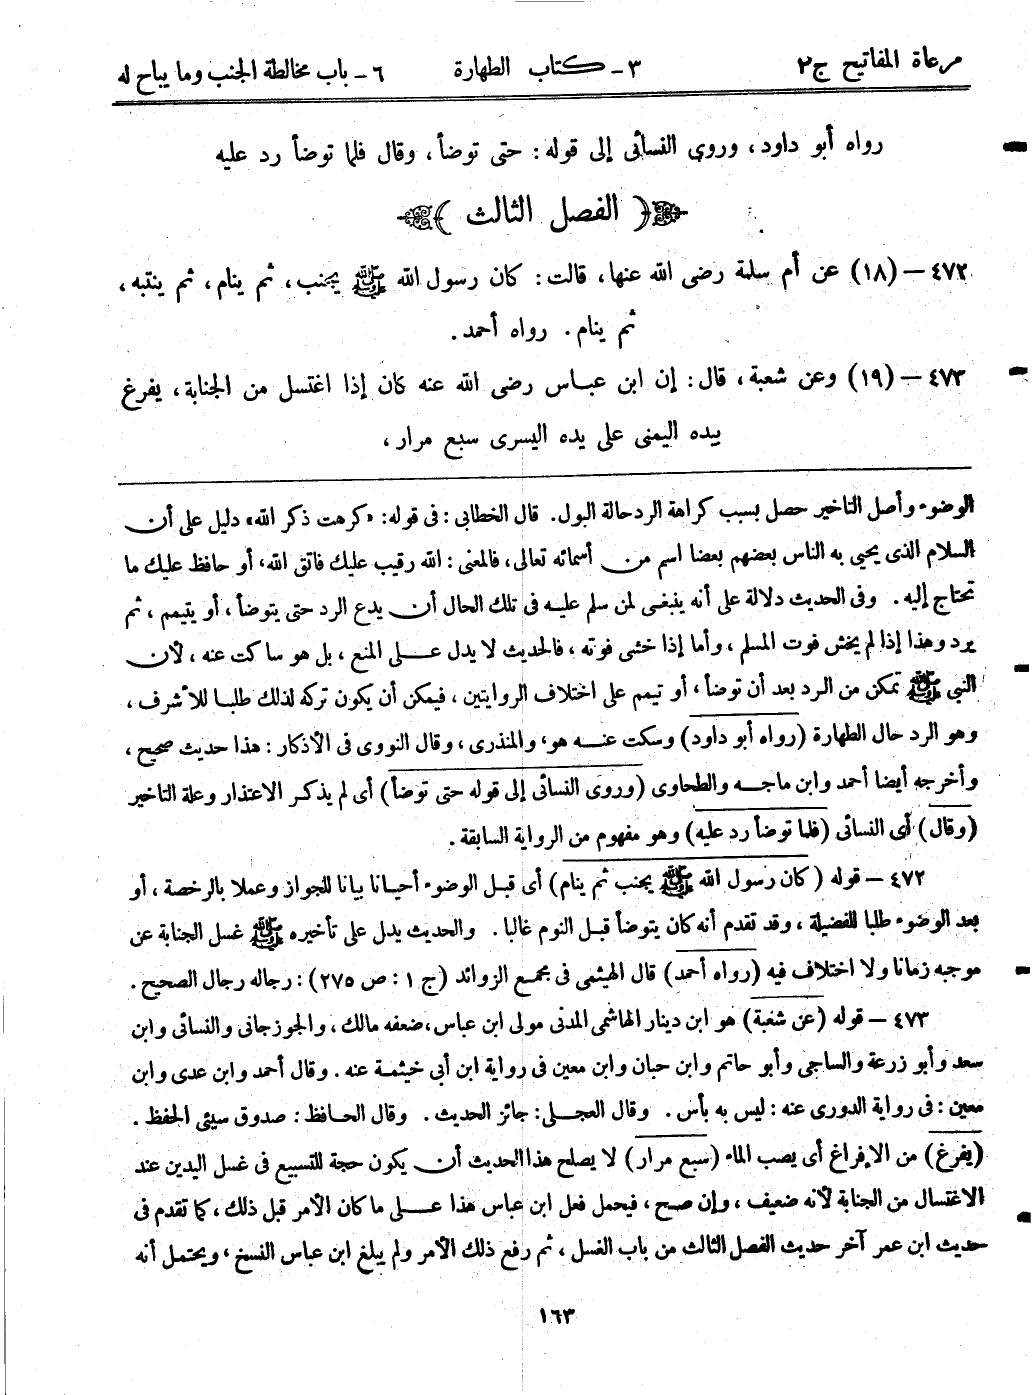 مرعاة المفاتيح ج٢ ٣- كتاب الطهارة ٦- باب مخالطة الجنب وما يباح له
رواه أبو داود، وروى النسائى إلى قوله: حتى توضأ، وقال فلما توضأ رد عليه
﴿ الفصل الثالث ﴾
٤٧٢ – (١٨) عن أم سلمة رضى الله عنها، قالت: كان رسول الله ﷺ يجنب، ثم ينام، ثم ينتبه،
ثم ينام. رواه أحمد.
٤٧٣ – (١٩) وعن شعبة، قال: إن ابن عباس رضى الله عنه كان إذا اغتسل من الجنابة، يفرغ
بيده اليمنى على يده اليسرى سبع مرار،
الوضوء وأصل التاخير حصل بسبب كراهة الرد حالة البول. قال الخطابى: فى قوله: «كرهت ذكر الله» دليل على أن
السلام الذى يحيى به الناس بعضهم بعضا اسم من أسمائه تعالى، فالمعنى: الله رقيب عليك فاتق الله، أو حافظ عليك ما
تحتاج إليه. وفى الحديث دلالة على أنه ينبغى لمن سلم عليه فى تلك الحال أن يدع الرد حتى يتوضأ، أو يتيمم، ثم
يرد وهذا إذا لم يخش فوت المسلم، وأما إذا خشى فوته، فالحديث لا يدل على المنع، بل هو ساكت عنه، لأن
النبى ﷺ تمكن من الرد بعد أن توضأ، أو تيمم على اختلاف الروايتين، فيمكن أن يكون تركه لذلك طلبا للأشرف،
وهو الرد حال الطهارة (رواه أبو داود) وسكت عنه هو، والمنذرى، وقال النووى فى الأذكار: هذا حديث صحيح،
وأخرجه أيضا أحمد وابن ماجه والطحاوى (وروى النسائى إلى قوله حتى توضأ) أى لم يذكر الاعتذار وعلة التاخير
(وقال) أى النسائى (فلما توضأ رد عليه) وهو مفهوم من الرواية السابقة.
٤٧٢ – قوله (كان رسول الله ﷺ يجنب ثم ينام) أى قبل الوضوء أحيانا بيانا للجواز وعملا بالرخصة، أو
بعد الوضوء طلبا للفضيلة، وقد تقدم أنه كان يتوضأ قبل النوم غالبا. والحديث يدل على تأخيره ﷺ غسل الجنابة عن
موجبه زمانا ولا اختلاف فيه (رواه أحمد) قال الهيثمى فى مجمع الزوائد (ج ١: ص ٢٧٥): رجاله رجال الصحيح.
٤٧٣ – قوله (عن شعبة) هو ابن دينار الهاشمى المدنى مولى ابن عباس، ضعفه مالك، والجوزجانى والنسائى وابن
سعد وأبو زرعة والساجى وأبو حاتم وابن حبان وابن معين فى رواية ابن أبى خيثمة عنه. وقال أحمد وابن عدى وابن
معين: فى رواية الدورى عنه: ليس به بأس. وقال العجلى: جائز الحديث. وقال الحافظ: صدوق سيئى الحفظ.
(يفرغ) من الإفراغ أى يصب الماء (سبع مرار) لا يصلح هذا الحديث أن يكون حجة للتسبيع فى غسل اليدين عند
الاغتسال من الجنابة لأنه ضعيف، وإن صح، فيحمل فعل ابن عباس هذا على ما كان الأمر قبل ذلك، كما تقدم فى
حديث ابن عمر آخر حديث الفصل الثالث من باب الغسل، ثم رفع ذلك الأمر ولم يبلغ ابن عباس النسخ، ويحتمل أنه
١٦٣